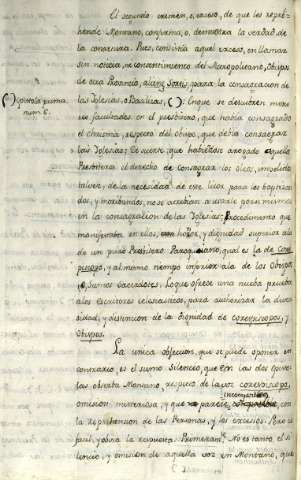 El segundo crimen, o exceso, de que les repre-
hende Montano, confirma, o demuestra la verdad de
la conjetura. Pues, consistía aquel exceso, en llamar
sin noticia, ni consentimiento del Metropolitano, Obispos
de otra Provincia, alienæ Sortis, para la consagracion de
las Iglesias, o Basilicas, ( ): En que se descubren meno-
res facultades en el presbitero, que havia consagrado
el chrisma, respecto del obispo, que debia consagrar
las Iglesias; De suerte, que haviendose arrogado aquellos
Presbiteros el derecho de consagrar los oleos, movidos
talvez, de la necesidad de este licor para los baptiza-
dos, y moribundos, no se atrebian a usarle por si mismos
en la consagracion de las Iglesias; Procedimiento que
manifestaba en ellos, honor, y dignidad superior a la
de un puro Presbitero Parroquiano, qual es la de Core-
piscopo, y al mismo tiempo inferior a la de los Obispos
o Sumos Sacerdotes. Lo que ofrece una nueba prueba
a los escritores eclesiasticos, para authorizar la diver-
sidad, y distincion de la dignidad de corepiscopos, y
obispos.
La unica objecion, que se puede oponer en
contrario, es el sumo silencio, que en las dos episto-
las observa Montano, respecto de la voz corepiscopo,
omision misteriosa, y que parece incompatible con
la reprehension de las Personas, y los excesos. Pero es
facil, y obvia la respuesta. Primeramte. No es tanto el si-
lencio, y omision de aquella voz en Montano, que
( ) epistola prima
num. 6.